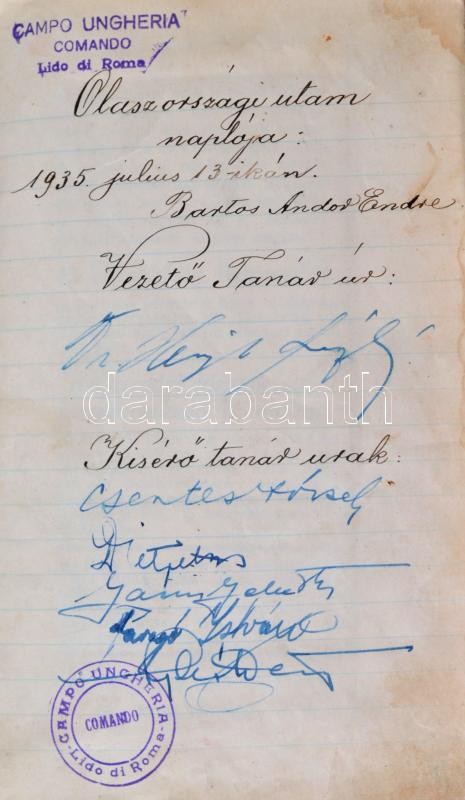 CAMPO UNGHERIA
COMANDO
Lido di Roma
Olaszországi utam
naplója:
1935. július 13-ikán.
Bartos Andor Endre.
Vezető Tanár úr:
Dr.
darabanth
Kisérő tanár urak:
Csentes
István
CAMPO UNGHERIA
COMANDO
-Lido di Roma-